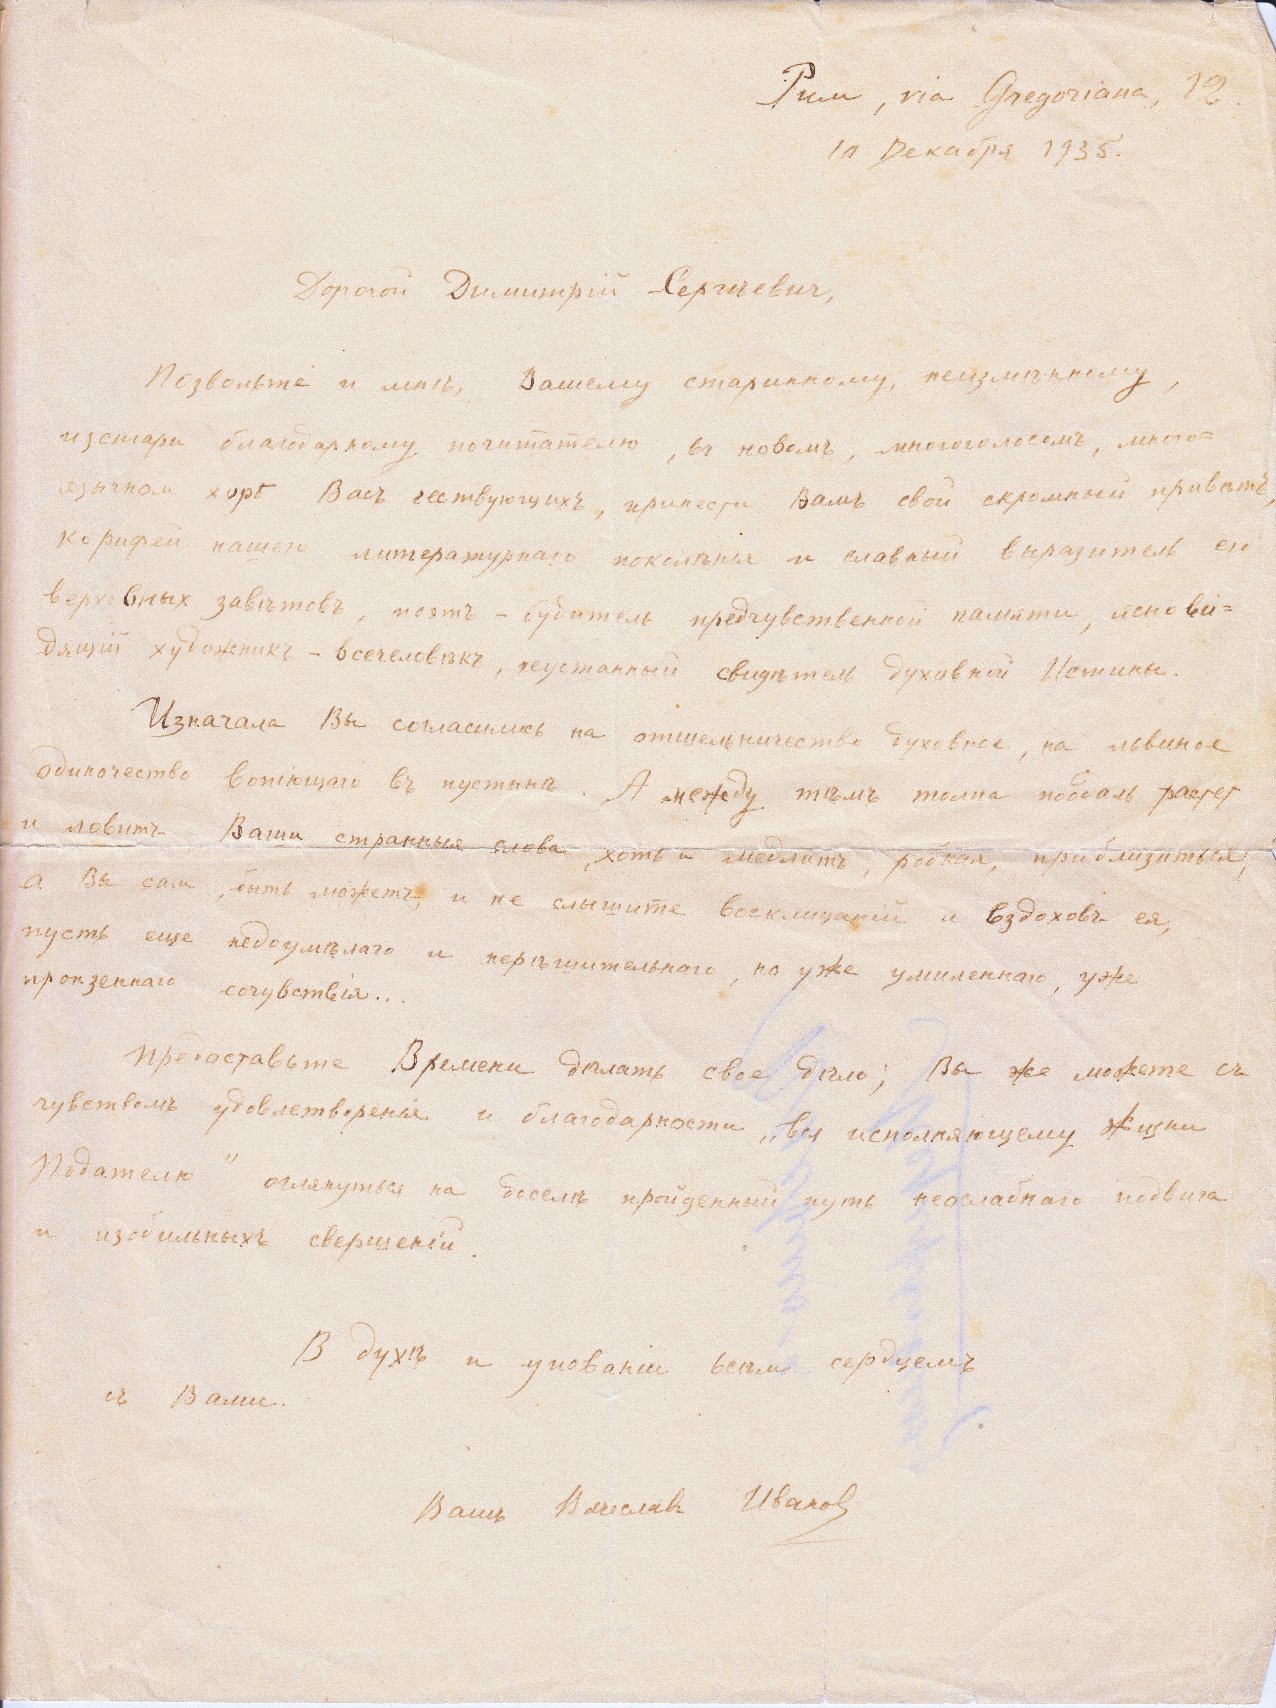 Римъ, via Gregoriana, 12.
10 Декабря 1935.
Дорогой Димитрій Сергѣевич,
Позвольте и мнѣ, Вашему старинному, неизмѣнному,
изстари благодарному почитателю, въ новомъ, многоголосомъ, много=
язычном хорѣ Васъ чествующихъ, принести Вамъ свой скромный привѣтъ,
корифей нашего литературнаго поколѣнія и славный выразитель его
верховных завѣтовъ, поэтъ - будитель предчувственной памяти, яснови=
дящій художникъ - всечеловѣкъ, неустанный свидѣтель духовной Истины.
Изначала Вы согласились на отшельничество духовное, на львиное
одиночество вопіющаго въ пустынѣ. А между тѣмъ толпа поодаль растет
и ловитъ Ваши странныя слова, хоть и медлитъ, робкая, приблизиться;
а Вы сам, быть можетъ, и не слышите восклицаній и вздоховъ ея,
пусть еще недоумѣлаго и нерѣшительнаго, но уже умиленнаго, уже
пронзеннаго сочувствія...
Предоставьте Времени дѣлать свое дѣло; Вы же можете съ
чувствомъ удовлетворенія и благодарности „вся исполняющему Жизни
Подателю" оглянуться на доселѣ пройденный путь неослабнаго подвига
и изобильныхъ свершеній.
В духѣ и упованіи всѣм сердцемъ
съ Вами.
Вашъ Вячеслав Иванов